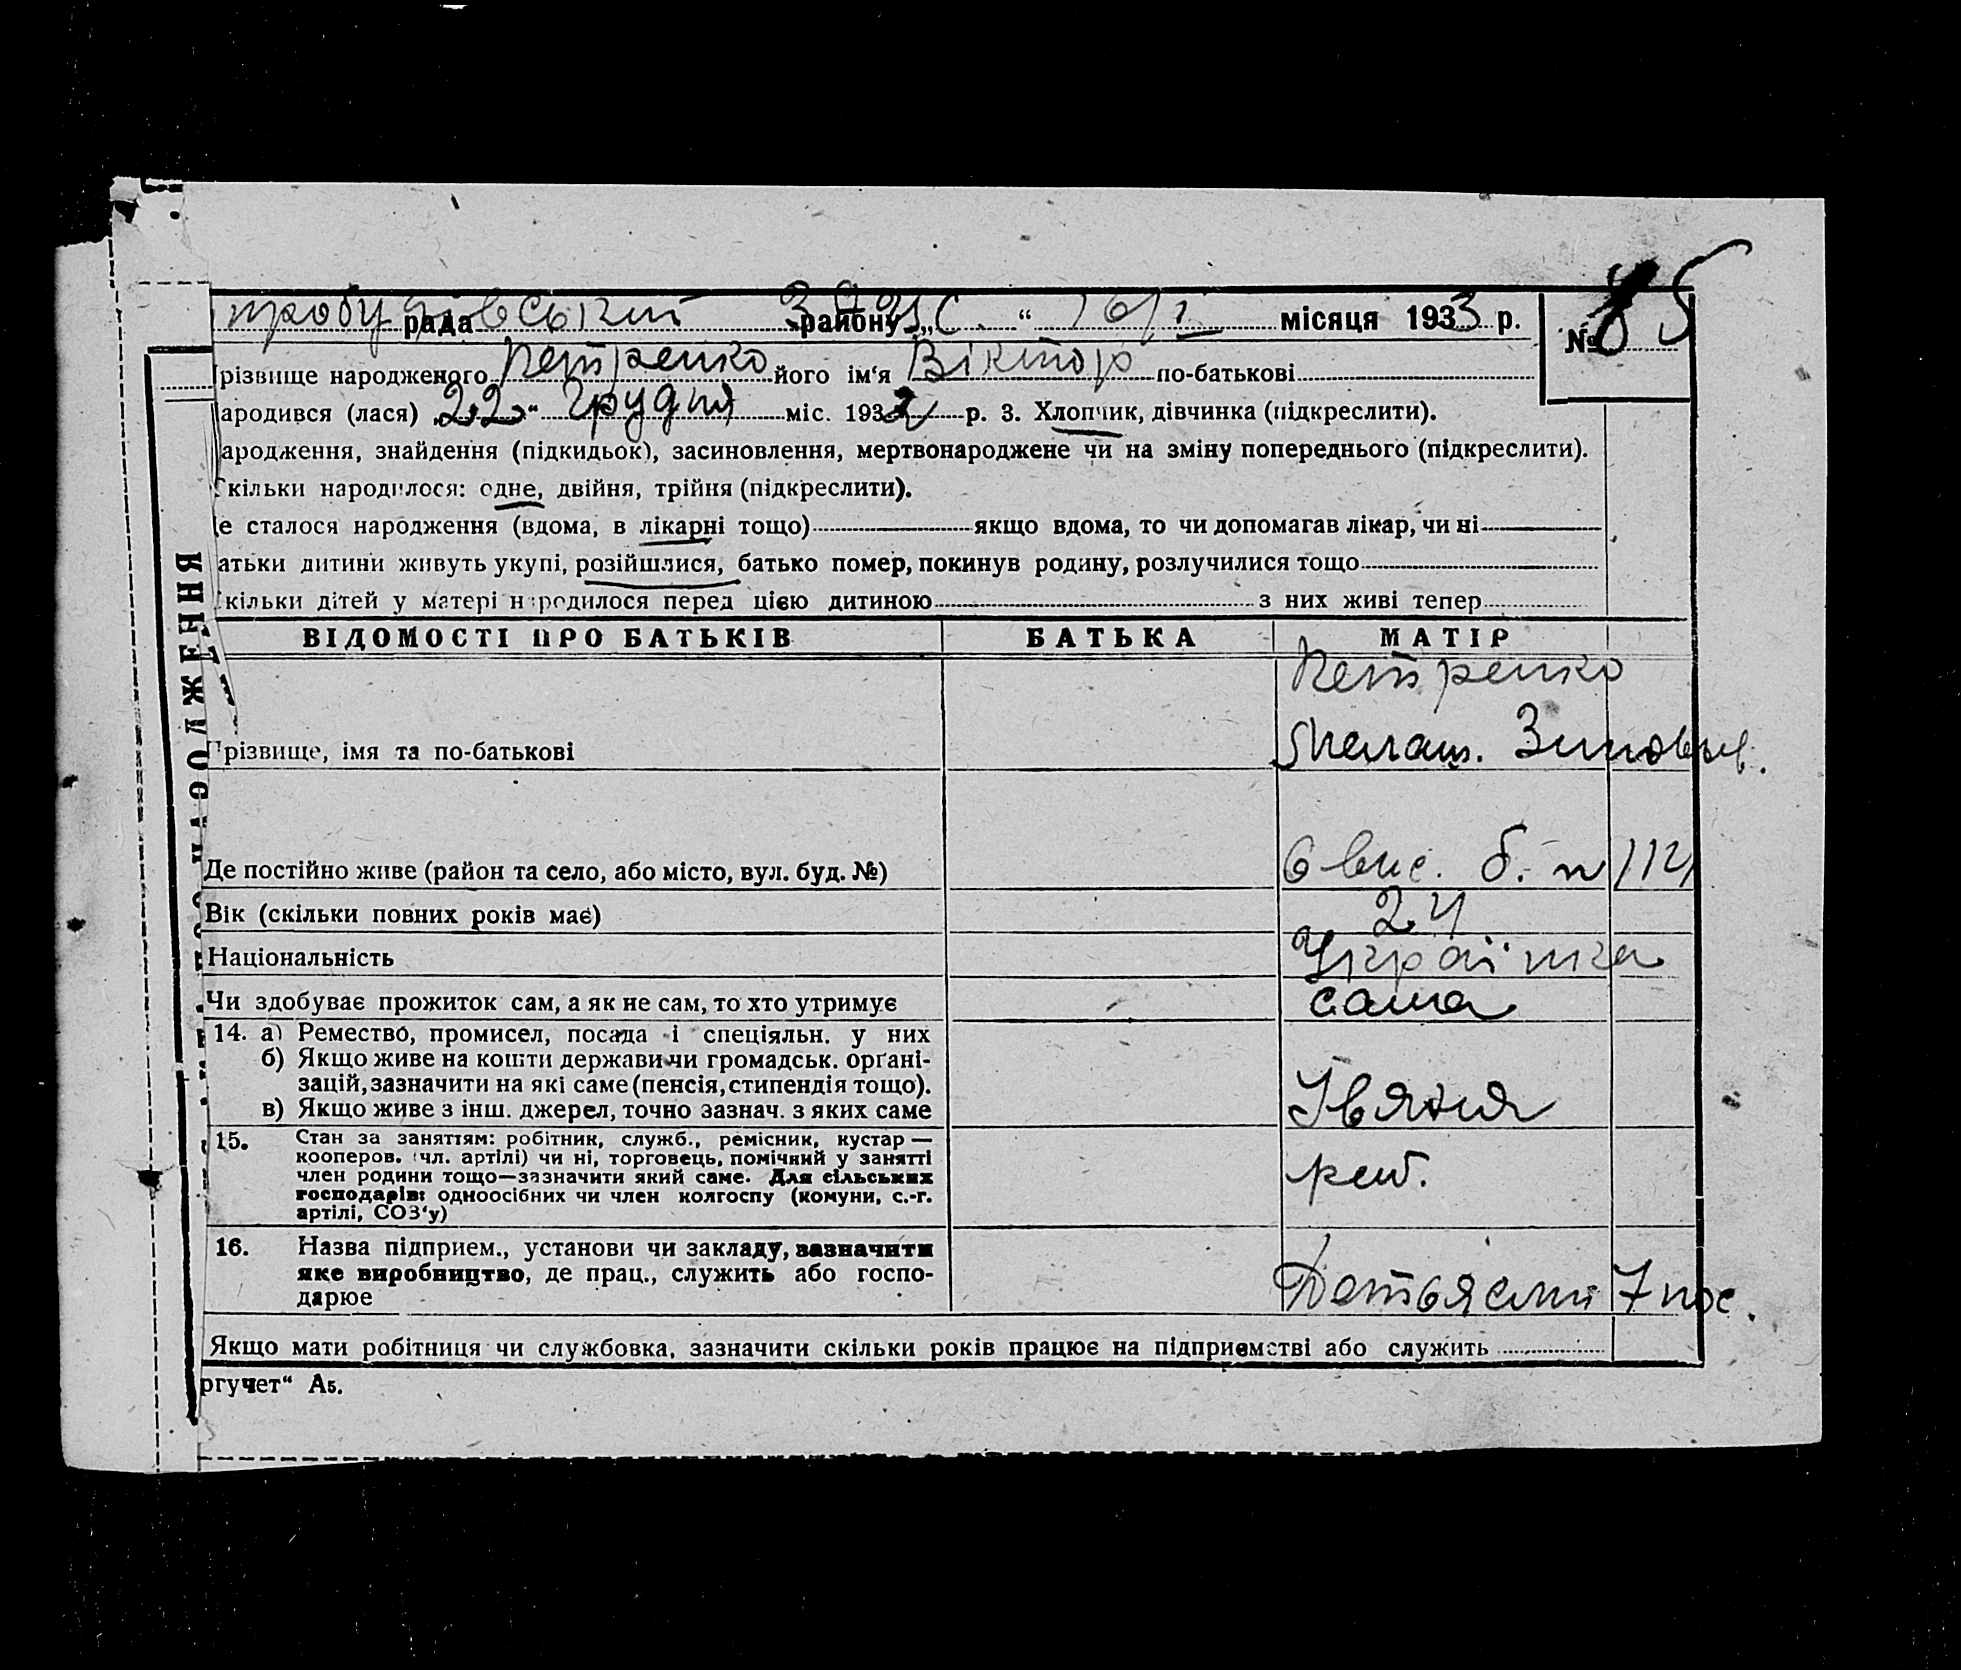 рада району „ “ 16/I місяця 1933 р.
№ 85
різвище народженого Петренко його ім‘я Віктор по-батькові
ародився (лася) 22 “ грудня міс. 1932 р. 3. Хлопчик, дівчинка (підкреслити).
ародження, знайдення (підкидьок), засиновлення, мертвонароджене чи на зміну попереднього (підкреслити).
кільки народилося: одне, двійня, трійня (підкреслити).
е сталося народження (вдома, в лікарні тощо) якщо вдома, то чи допомагав лікар, чи ні
атьки дитини живуть укупі, розійшлися, батько помер, покинув родину, розлучилися тощо
кільки дітей у матері народилося перед цією дитиною з них живі тепер
ВІДОМОСТІ ПРО БАТЬКІВ БАТЬКА МАТІР
Петренко
різвище, імя та по-батькові
Де постійно живе (район та село, або місто, вул. буд. №) 6 вис. б. н 112
Вік (скільки повних років має) 24
Національність Українка
Чи здобуває прожиток сам, а як не сам, то хто утримує сама
14. а) Ремество, промисел, посада і спеціяльн. у них
б) Якщо живе на кошти держави чи громадськ. орґані-
зацій, зазначити на які саме (пенсія, стипендія тощо).
в) Якщо живе з інш. джерел, точно зазнач. з яких саме
15. Стан за заняттям: робітник, служб., ремісник, кустар —
кооперов. (чл. артілі) чи ні, торговець, помічний у занятті
член родини тощо—зазначити який саме. Для сільських
господарів: одноосібних чи член колгоспу (комуни, с.-г.
артілі, СОЗ‘у)
16. Назва підприєм., установи чи закладу, зазначити
яке виробництво, де прац., служить або госпо-
дарюе Детьясли 7 пос.
Якщо мати робітниця чи службовка, зазначити скільки років працює на підприємстві або служить
ргучет“ А5.